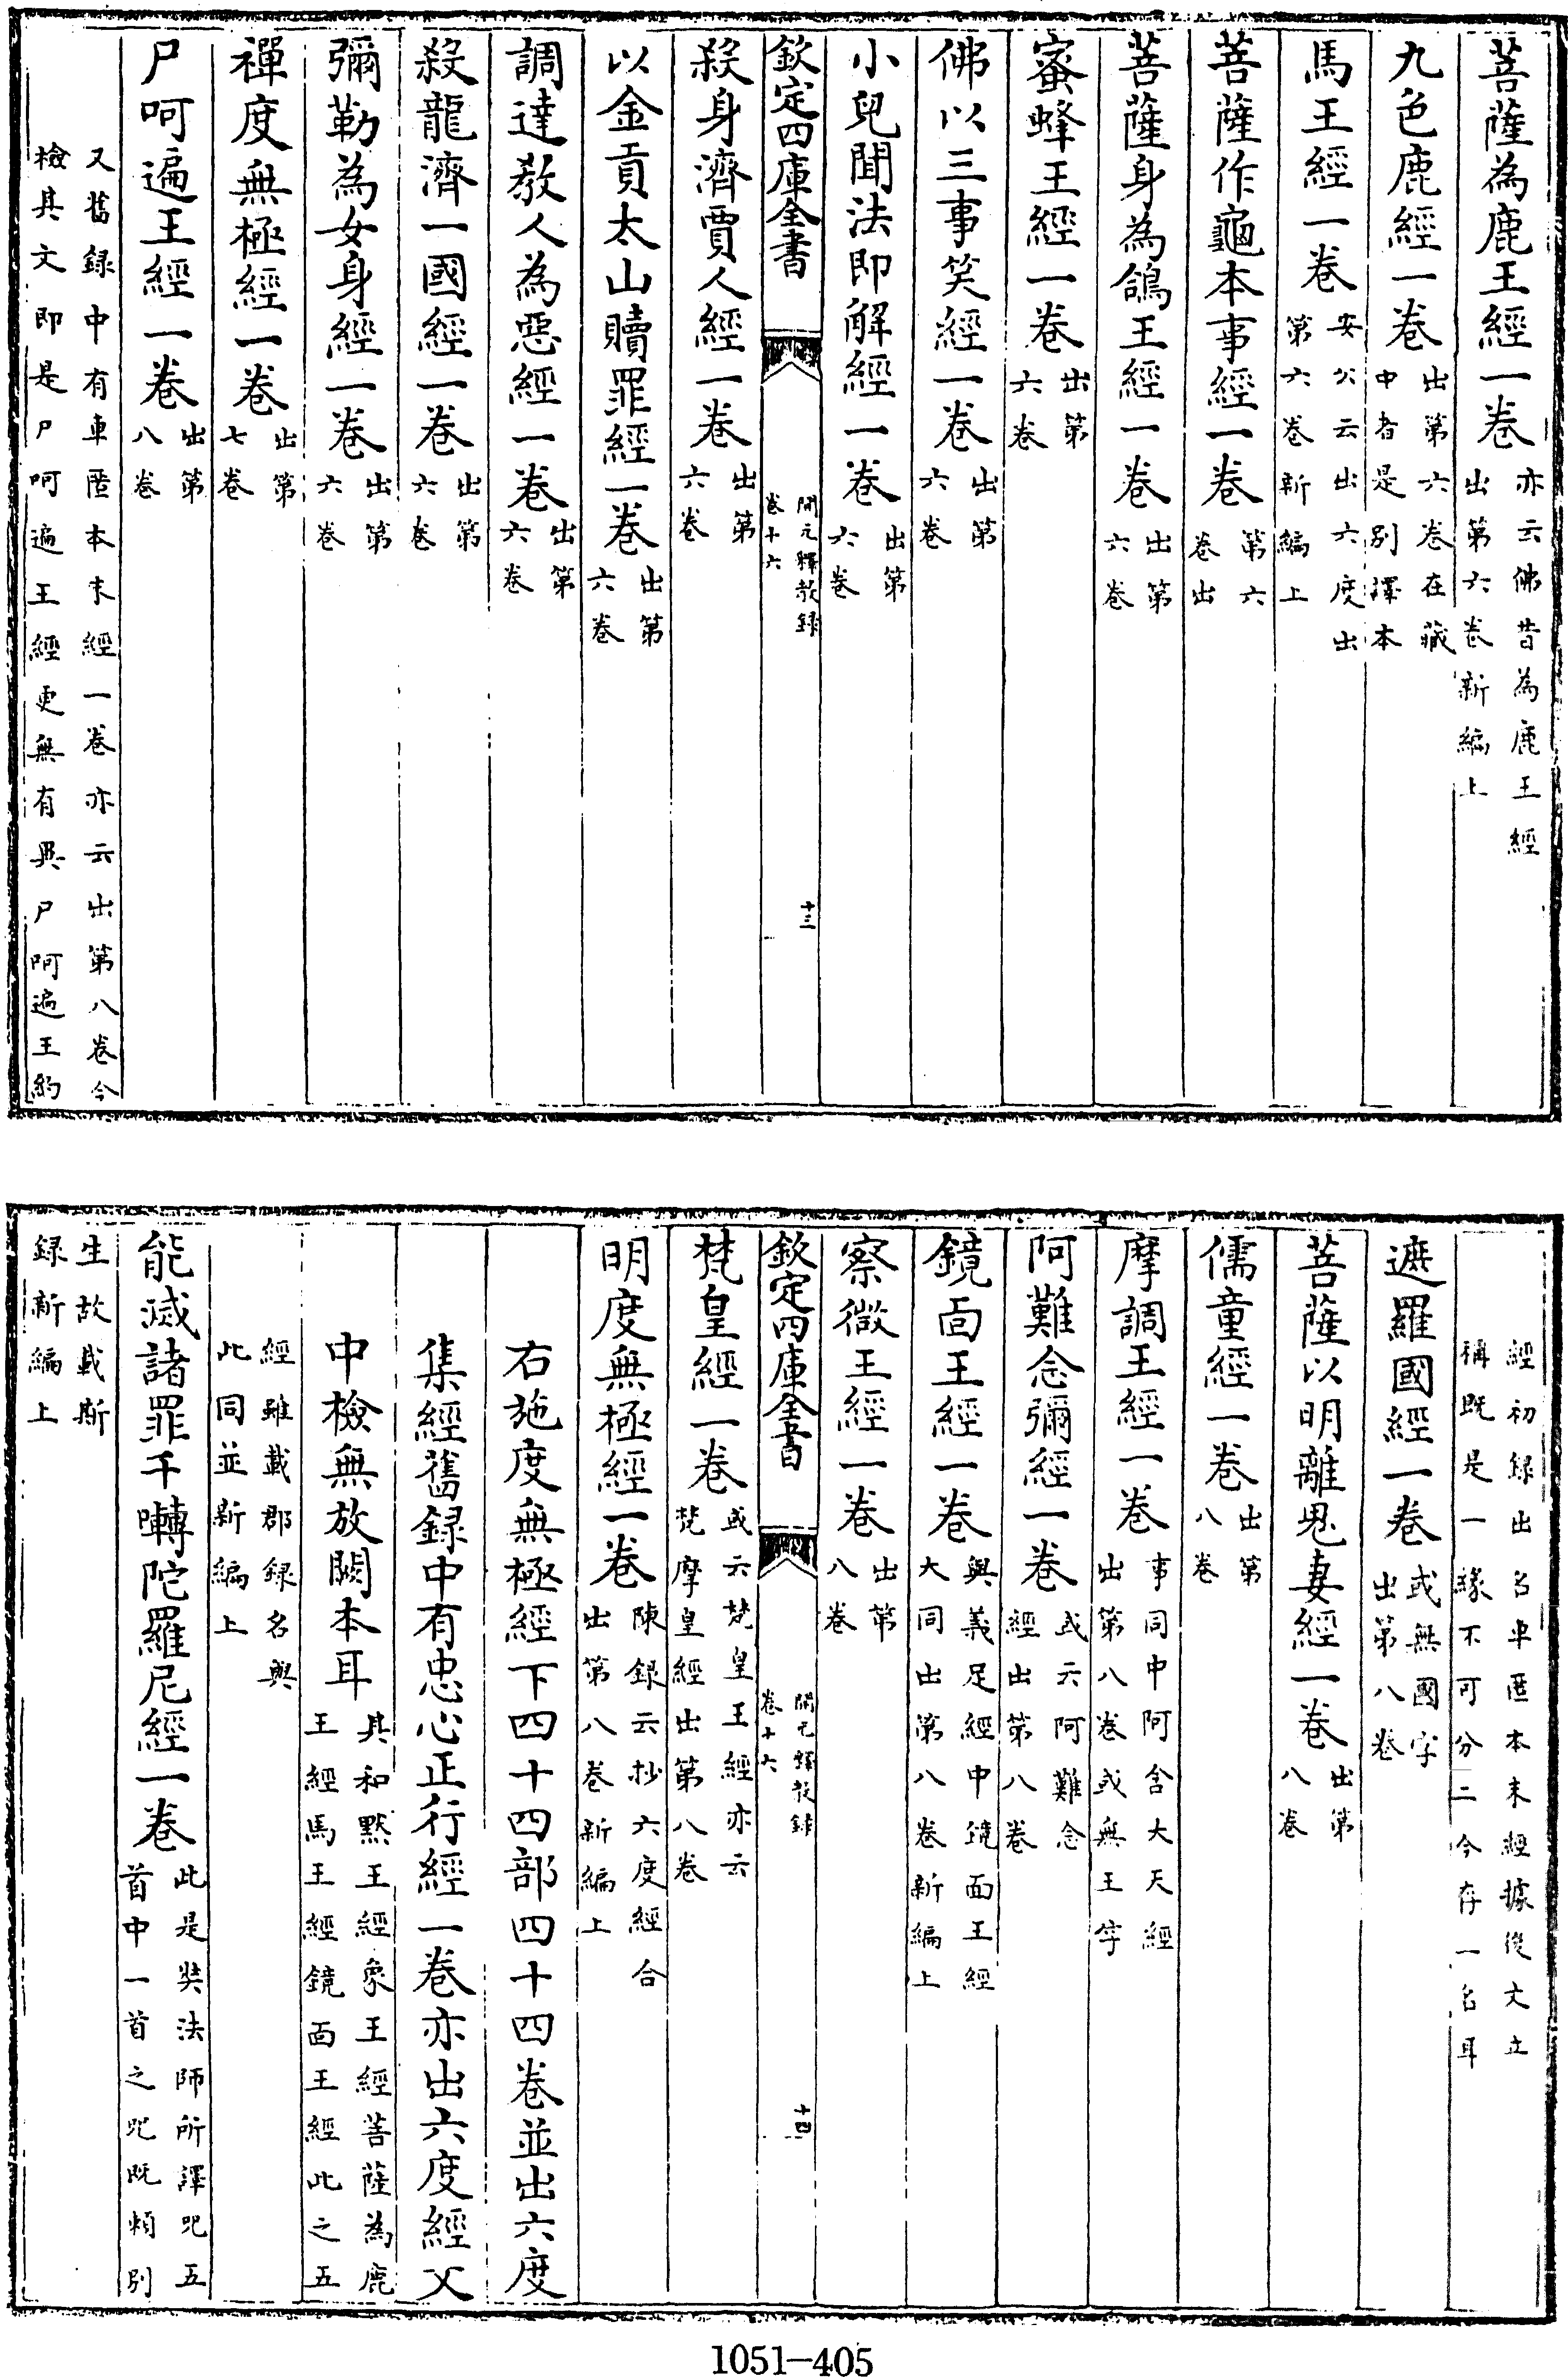 菩薩為鹿王經一卷亦云佛昔為鹿王經出第六卷新編上
九色鹿經一卷出第六卷在藏中者是別譯本
馬王經一卷安公云出六度出第六卷新編上
菩薩作龜本事經一卷第六卷出
菩薩身為鴿王經一卷出第六卷
蜜蜂王經一卷出第六卷
佛以三事笑經一卷出第六卷
小兒聞法即解經一卷出第六卷
欽定四庫全書 開元釋教録卷十六 十三
殺身濟賈人經一卷出第六卷
以金貢太山贖罪經一卷出第六卷
調達教人為惡經一卷出第六卷
殺龍濟一國經一卷出第六卷
彌勒為女身經一卷出第六卷
禪度無極經一卷出第七卷
尸呵遍王經一卷出第八卷
又舊録中有車匿本末經一卷亦云出第八卷今檢其文即是尸呵遍王經更無有異尸呵遍王約
經初録出名車匿本末經據後文立稱既是一緣不可分二今存一名耳
遮羅國經一卷或無國字出第八卷
菩薩以明離鬼妻經一卷出第八卷
儒童經一卷出第八卷
摩調王經一卷事同中阿含大天經出第八卷或無王字
阿難念彌經一卷或云阿難念經出第八卷
鏡面王經一卷與義足經中鏡面王經大同出第八卷新編上
察微王經一卷出第八卷
欽定四庫全書 開元釋教録卷十六 十四
梵皇經一卷或云梵皇王經亦云梵摩皇經出第八卷
明度無極經一卷陳録云抄六度經合出第八卷新編上
右施度無極經下四十四部四十四卷並出六度
集經舊録中有忠心正行經一卷亦出六度經文
中檢無放闕本耳其和默王經象王經菩薩為鹿王經馬王經鏡面王經此之五
經雖載郡録名與此同並新編上
能滅諸罪千囀陀羅尼經一卷此是奘法師所譯呪五首中一首之呪既頻別
生故載斯録新編上
1051-405